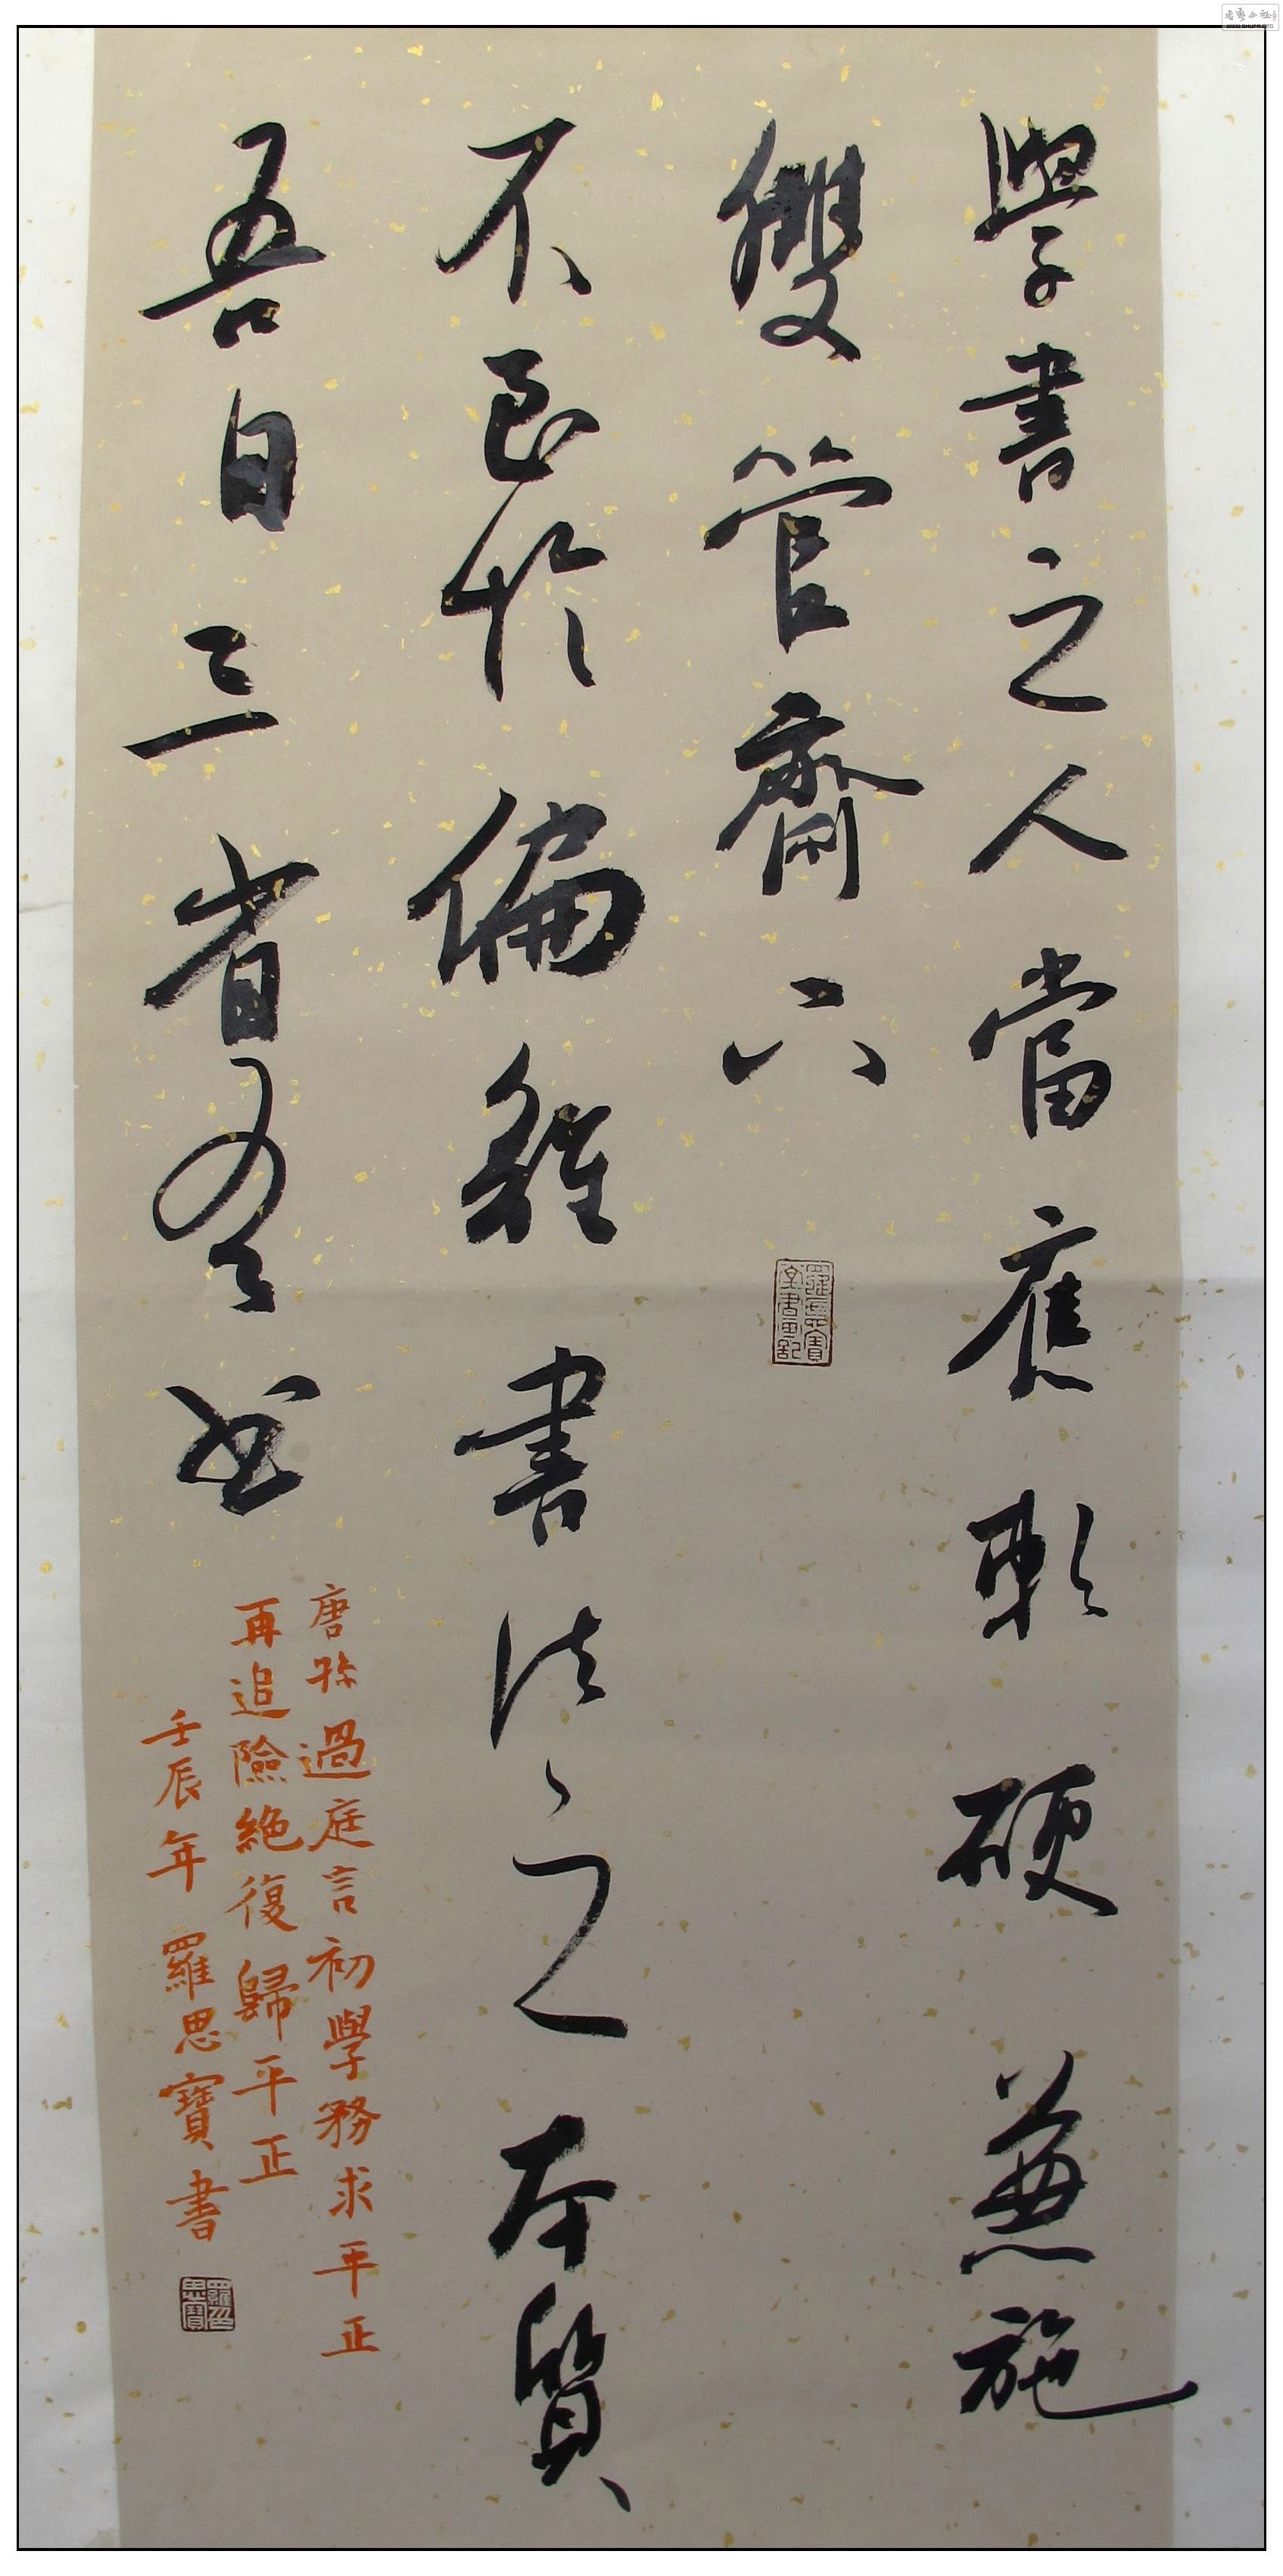 學書之人當應軟硬兼施
雙管齊下
不良於偏離書法之本質
吾日三省吾書
唐孫過庭言初學務求平正
再追險絕復歸平正
壬辰年羅思寶書
羅思寶